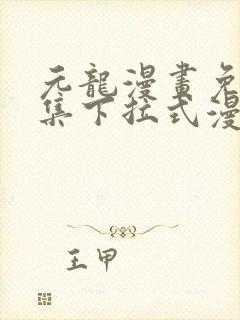 元龍漫畫免
集下拉式漫
王甲